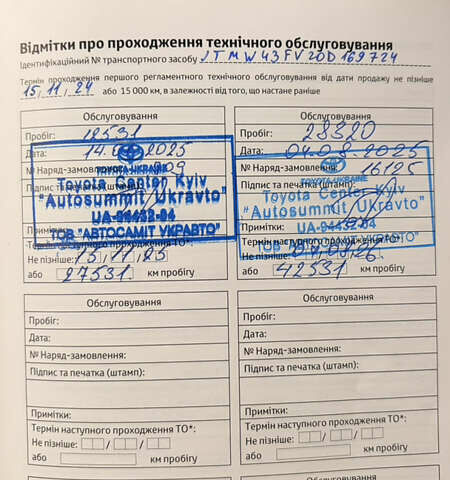 Відмітки про проходження технічного обслуговування
Ідентифікаційний № транспортного засобу JTMW43FV20D169724
Термін проходження першого регламентного технічного обслуговування від дати продажу не пізніше
15, 11, 24 або 15 000 км, в залежності від того, що настане раніше
Обслуговування
Пробіг: 12531
Дата: 14. 2025
№ Наряд-замовлення: 909
Підпис та печатка
TOYOTA-UKRAINE
Toyota Center Kyiv
"Autosummit Ukravto"
UA-04432-04
ТОВ "АВТОСАМІТ УКРАВТО"
Примітки:
Термін наступного проходження ТО*:
Не пізніше: 15, 11, 25
або 27531 км пробігу
Обслуговування
Пробіг: 28320
Дата: 04.08.2025
№ Наряд-замовлення: 16125
Підпис та печатка (штамп):
TOYOTA-UKRAINE
Toyota Center Kyiv
"Autosummit Ukravto"
UA-04432-04
Примітки:
Термін наступного проходження ТО*:
Не пізніше:
або 42531 км пробігу
Обслуговування
Пробіг:
Дата:
№ Наряд-замовлення:
Підпис та печатка (штамп):
Примітки:
Термін наступного проходження ТО*:
Не пізніше: / /
або км пробігу
Обслуговування
Пробіг:
Дата:
№ Наряд-замовлення:
Підпис та печатка (штамп):
Примітки:
Термін наступного проходження ТО*:
Не пізніше: / /
або км пробігу
Обслуговування